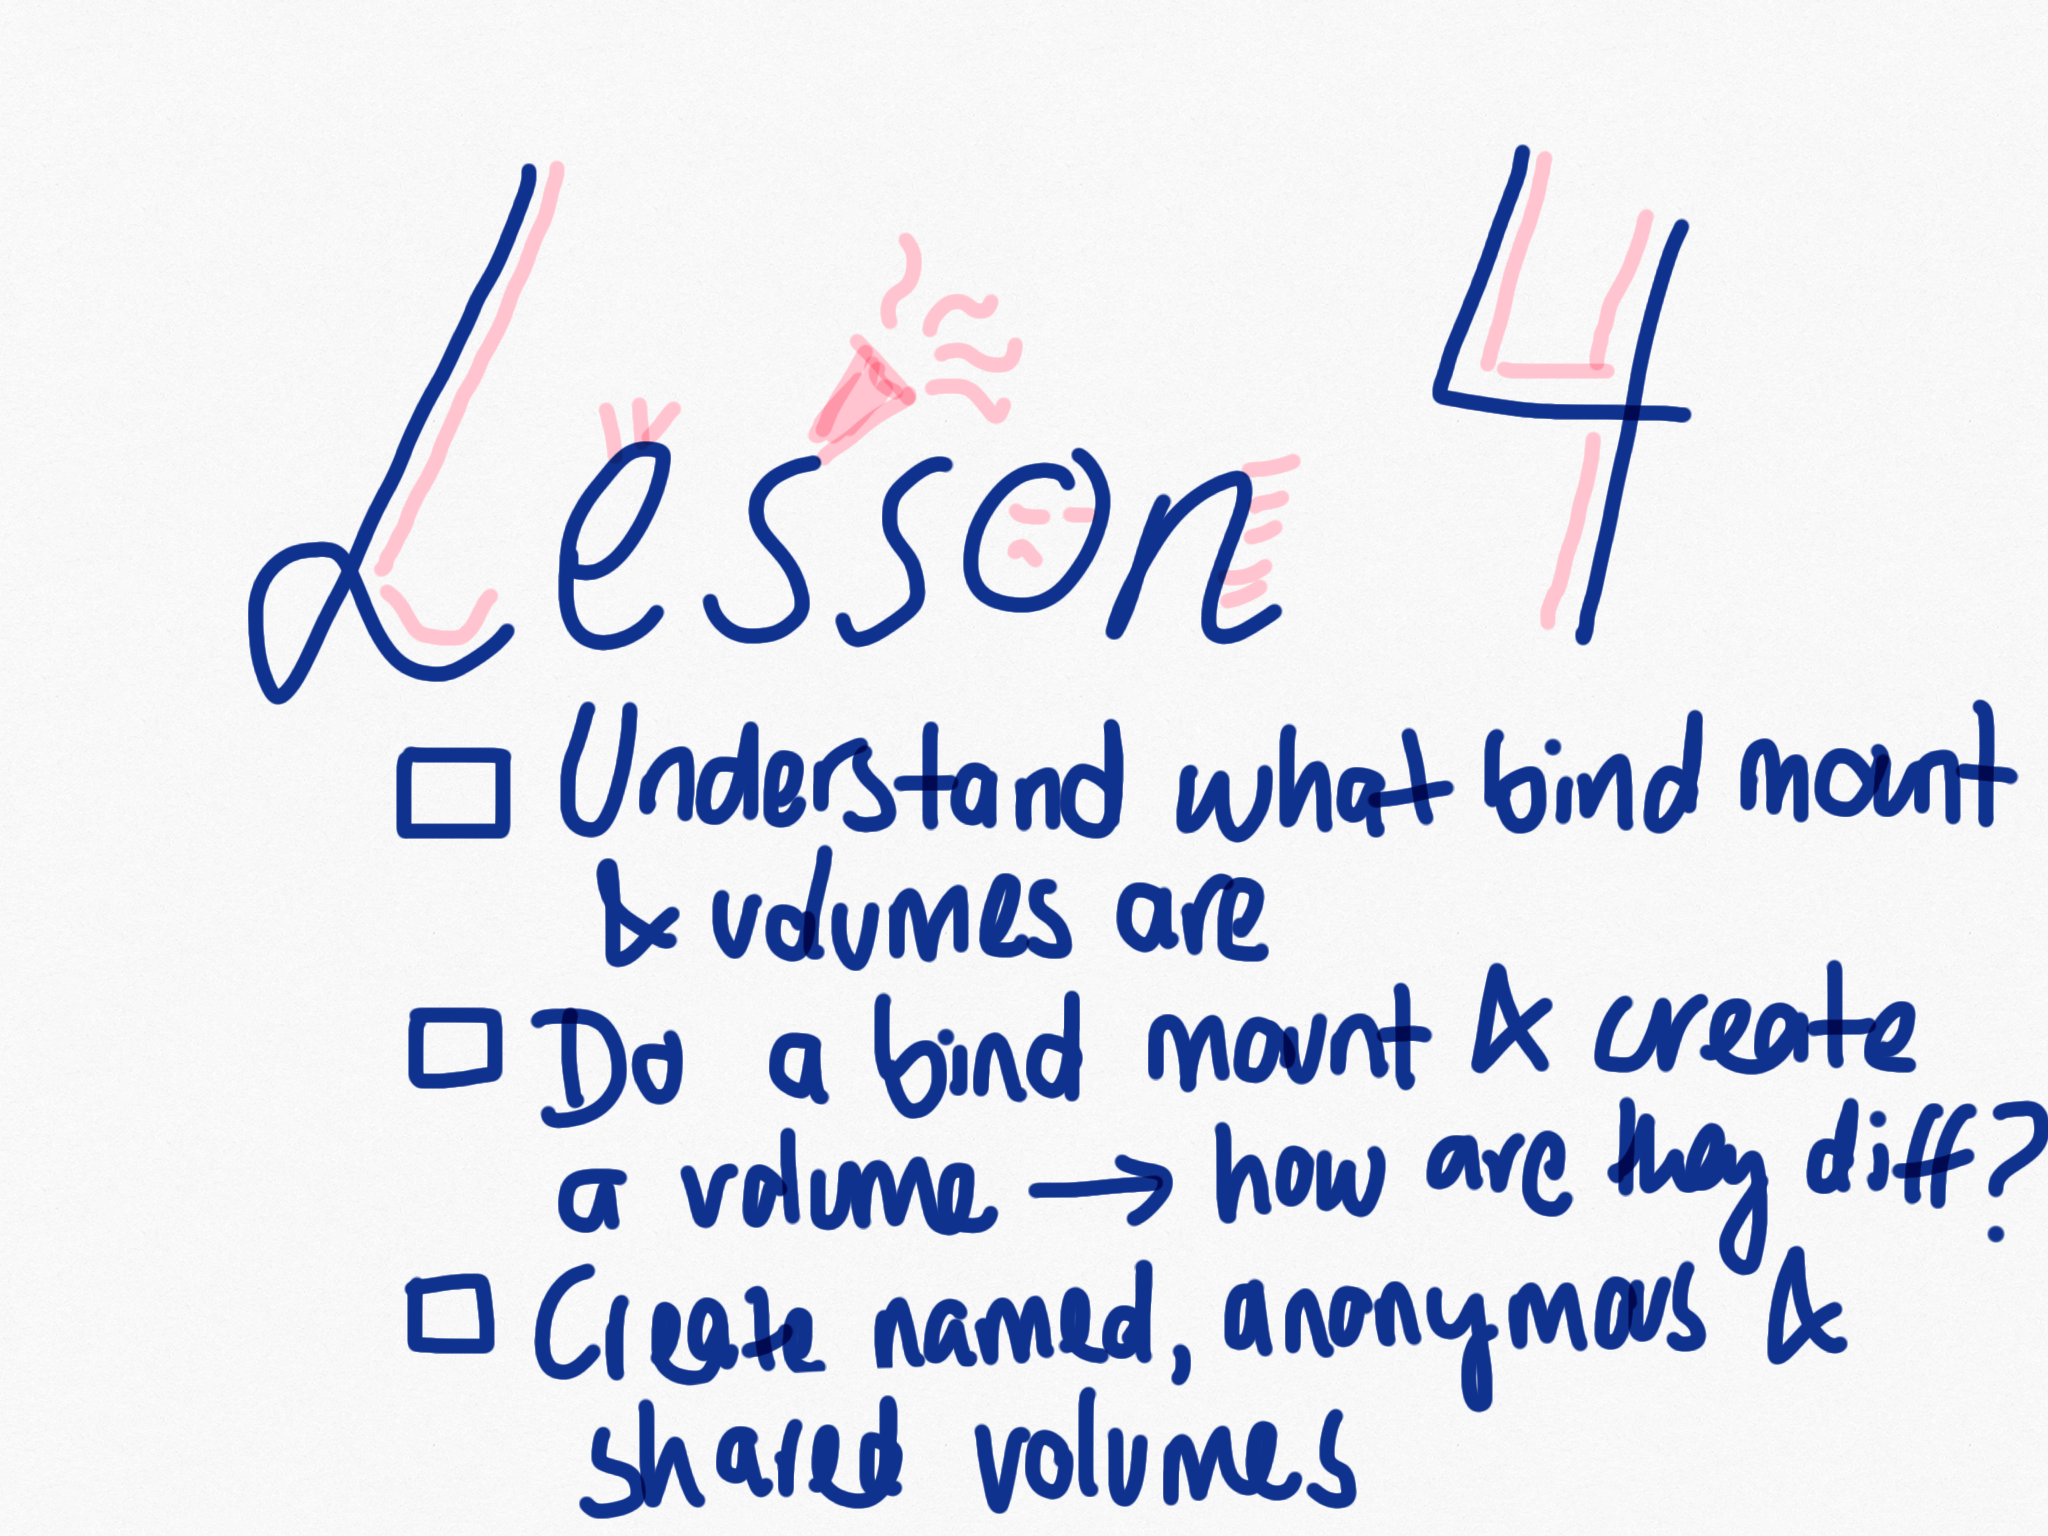 Lesson 4
Understand what bind mount
& volumes are
Do a bind mount & create
a volume → how are they diff?
Create named, anonymous &
shared volumes